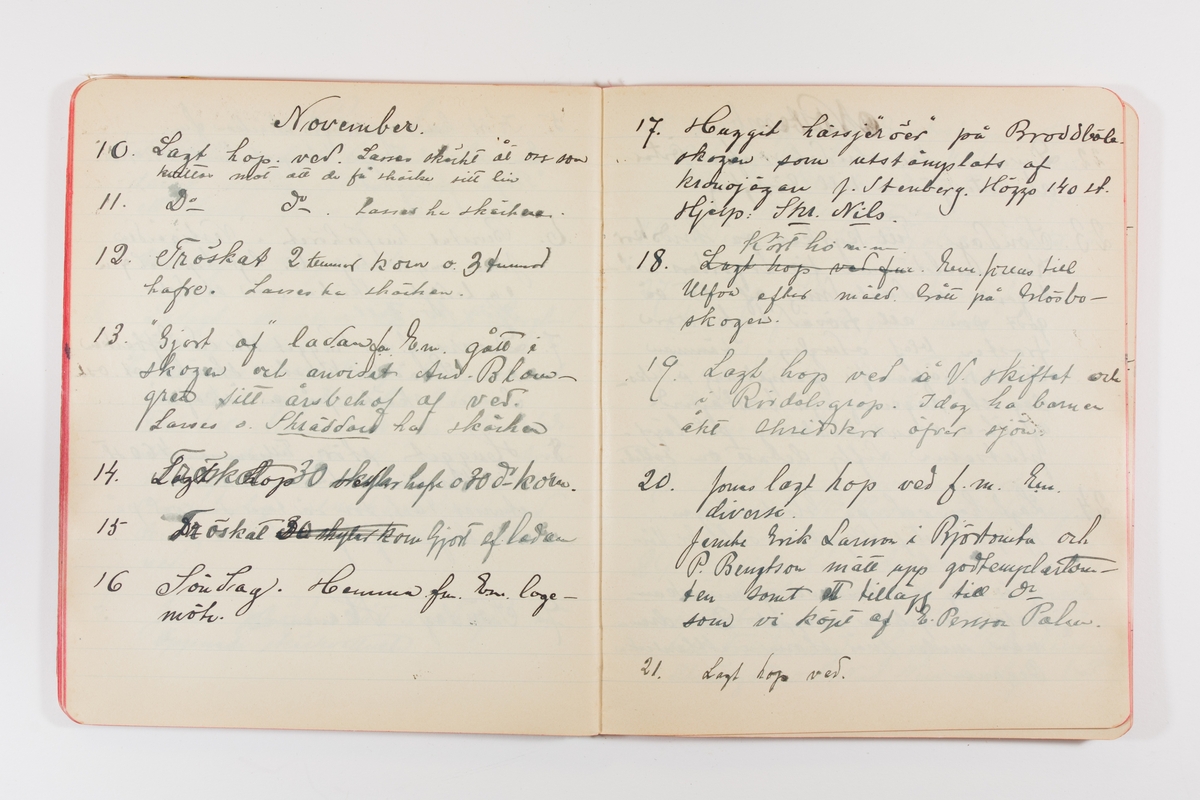 November.
10. Lagt hop. ved. Larses skäckt åt oss som
kuttra mot att de få skäcka sitt lin
11. Do Do. Larses ha skäckan.
12. Tröskat 2 tunnor korn o. 3 tunnor
hafre. Larses ha skäckan.
13. "Gjort af" ladan fm Em. gått i
skogen och anvisat And. Blom-
gren sitt årsbehof af ved.
Larses o. Skräddars ha skäckan
14. Tröskat 30 skyler hafre o 30 do korn.
15 Tröskat 30 skylar korn Gjort af ladan
16 Söndag. Hemma fm. Em. loge-
möte.
17. Huggit hässje"röer" på Broddböle-
skogen som utstämplats af
kronojägar J. Stenberg. Höggs 140 st.
Hjelp: Skr. Nils.
Kört hö m.m
18. Lagt hop ved fm. Em. frens till
Ulfön efter
skogen.
19. Lagt hop ved å V. skiftet och
i Rördalsgrop. Idag ha barnen
åkt skridskor öfver sjön.
20. Jonas lagt hop ved f.m. Em.
diverse.
Jemte Erik Larsson i Björtomta och
P. Bengtson mätt upp godtemplartom-
ten samt tillägg till do
som vi köpt af E. Persson Palm.
21. Lagt hop ved.